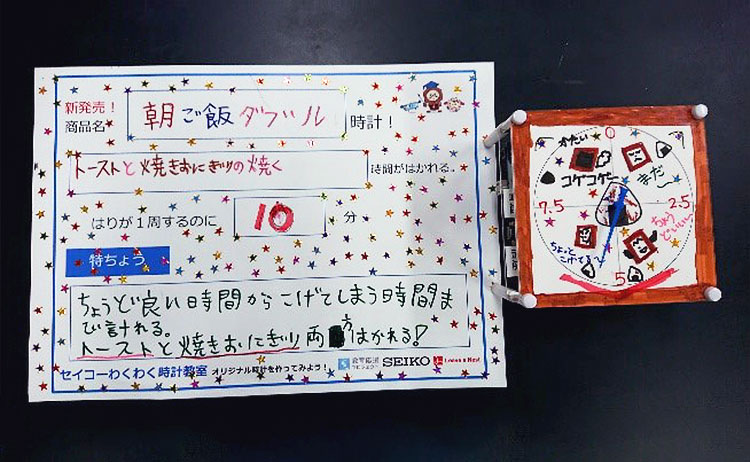 新発売!
商品名
朝ご飯ダブル
時計!
トーストと焼きおにぎりの焼く
時間がはかれる。
はりが1周するのに
10
分
特ちょう
ちょうど良い時間からこげてしまう時間ま
で計れる。
トーストと焼きおにぎり両方はかれる!
セイコーわくわく時計教室
オリジナル時計を作ってみよう!
SEIKO
Leave a Nest
0
かたい
コゲコゲ
まだ〜
7.5
2.5
ちょうどいい
ちょっと
こげてる〜
5